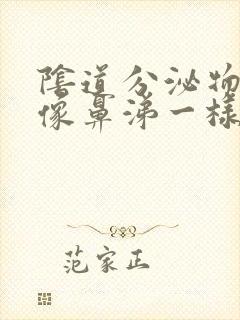 陰道分泌物
像鼻涕一樣
范家正